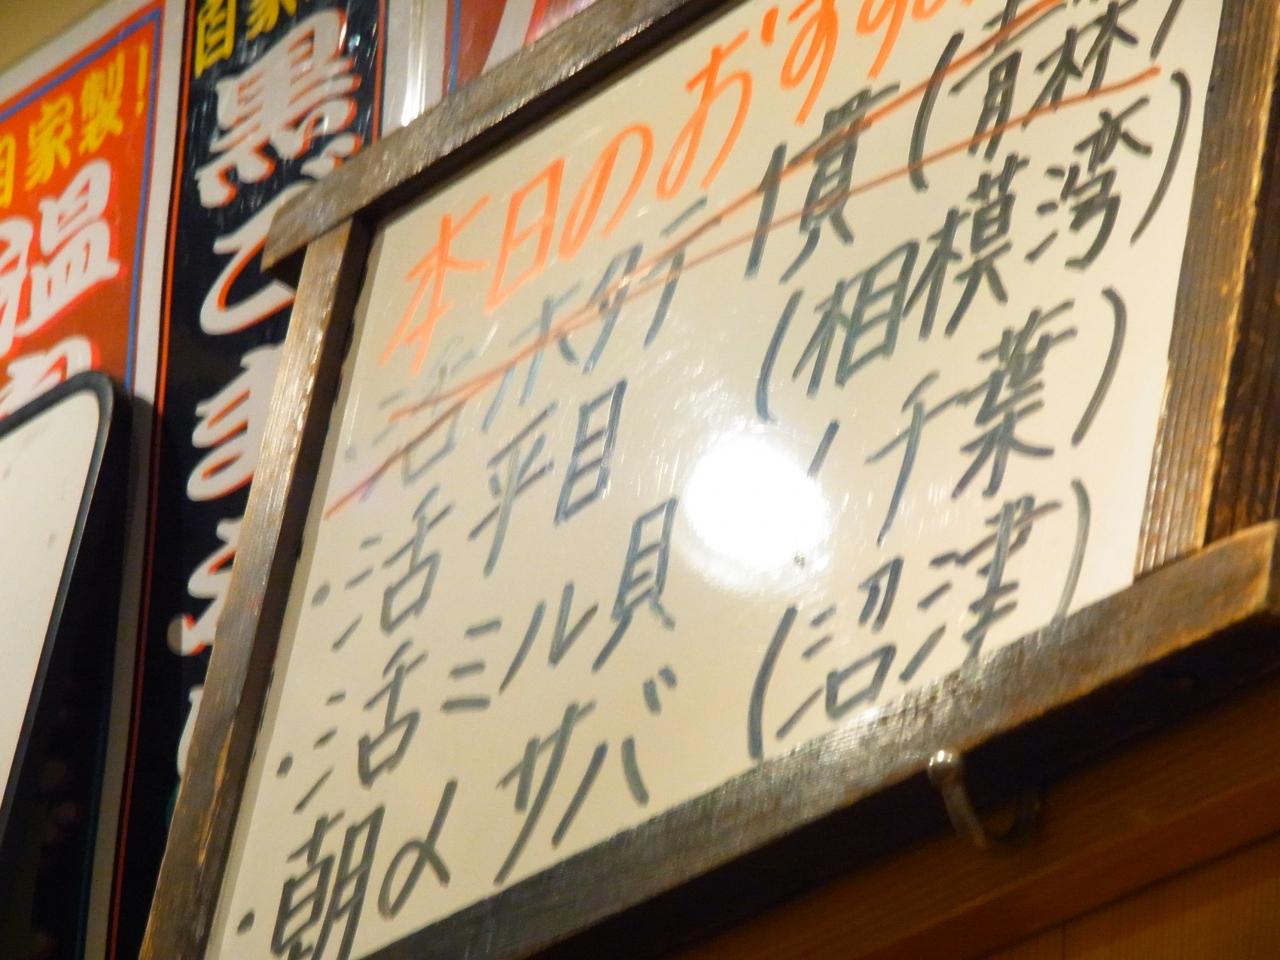 本日のおすす
・活ホタテ 1貫 (青森)
・活平目 (相模湾)
・活ミル貝 (千葉)
・朝〆サバ (沼津)
自家製!
温
自家
黒ごま